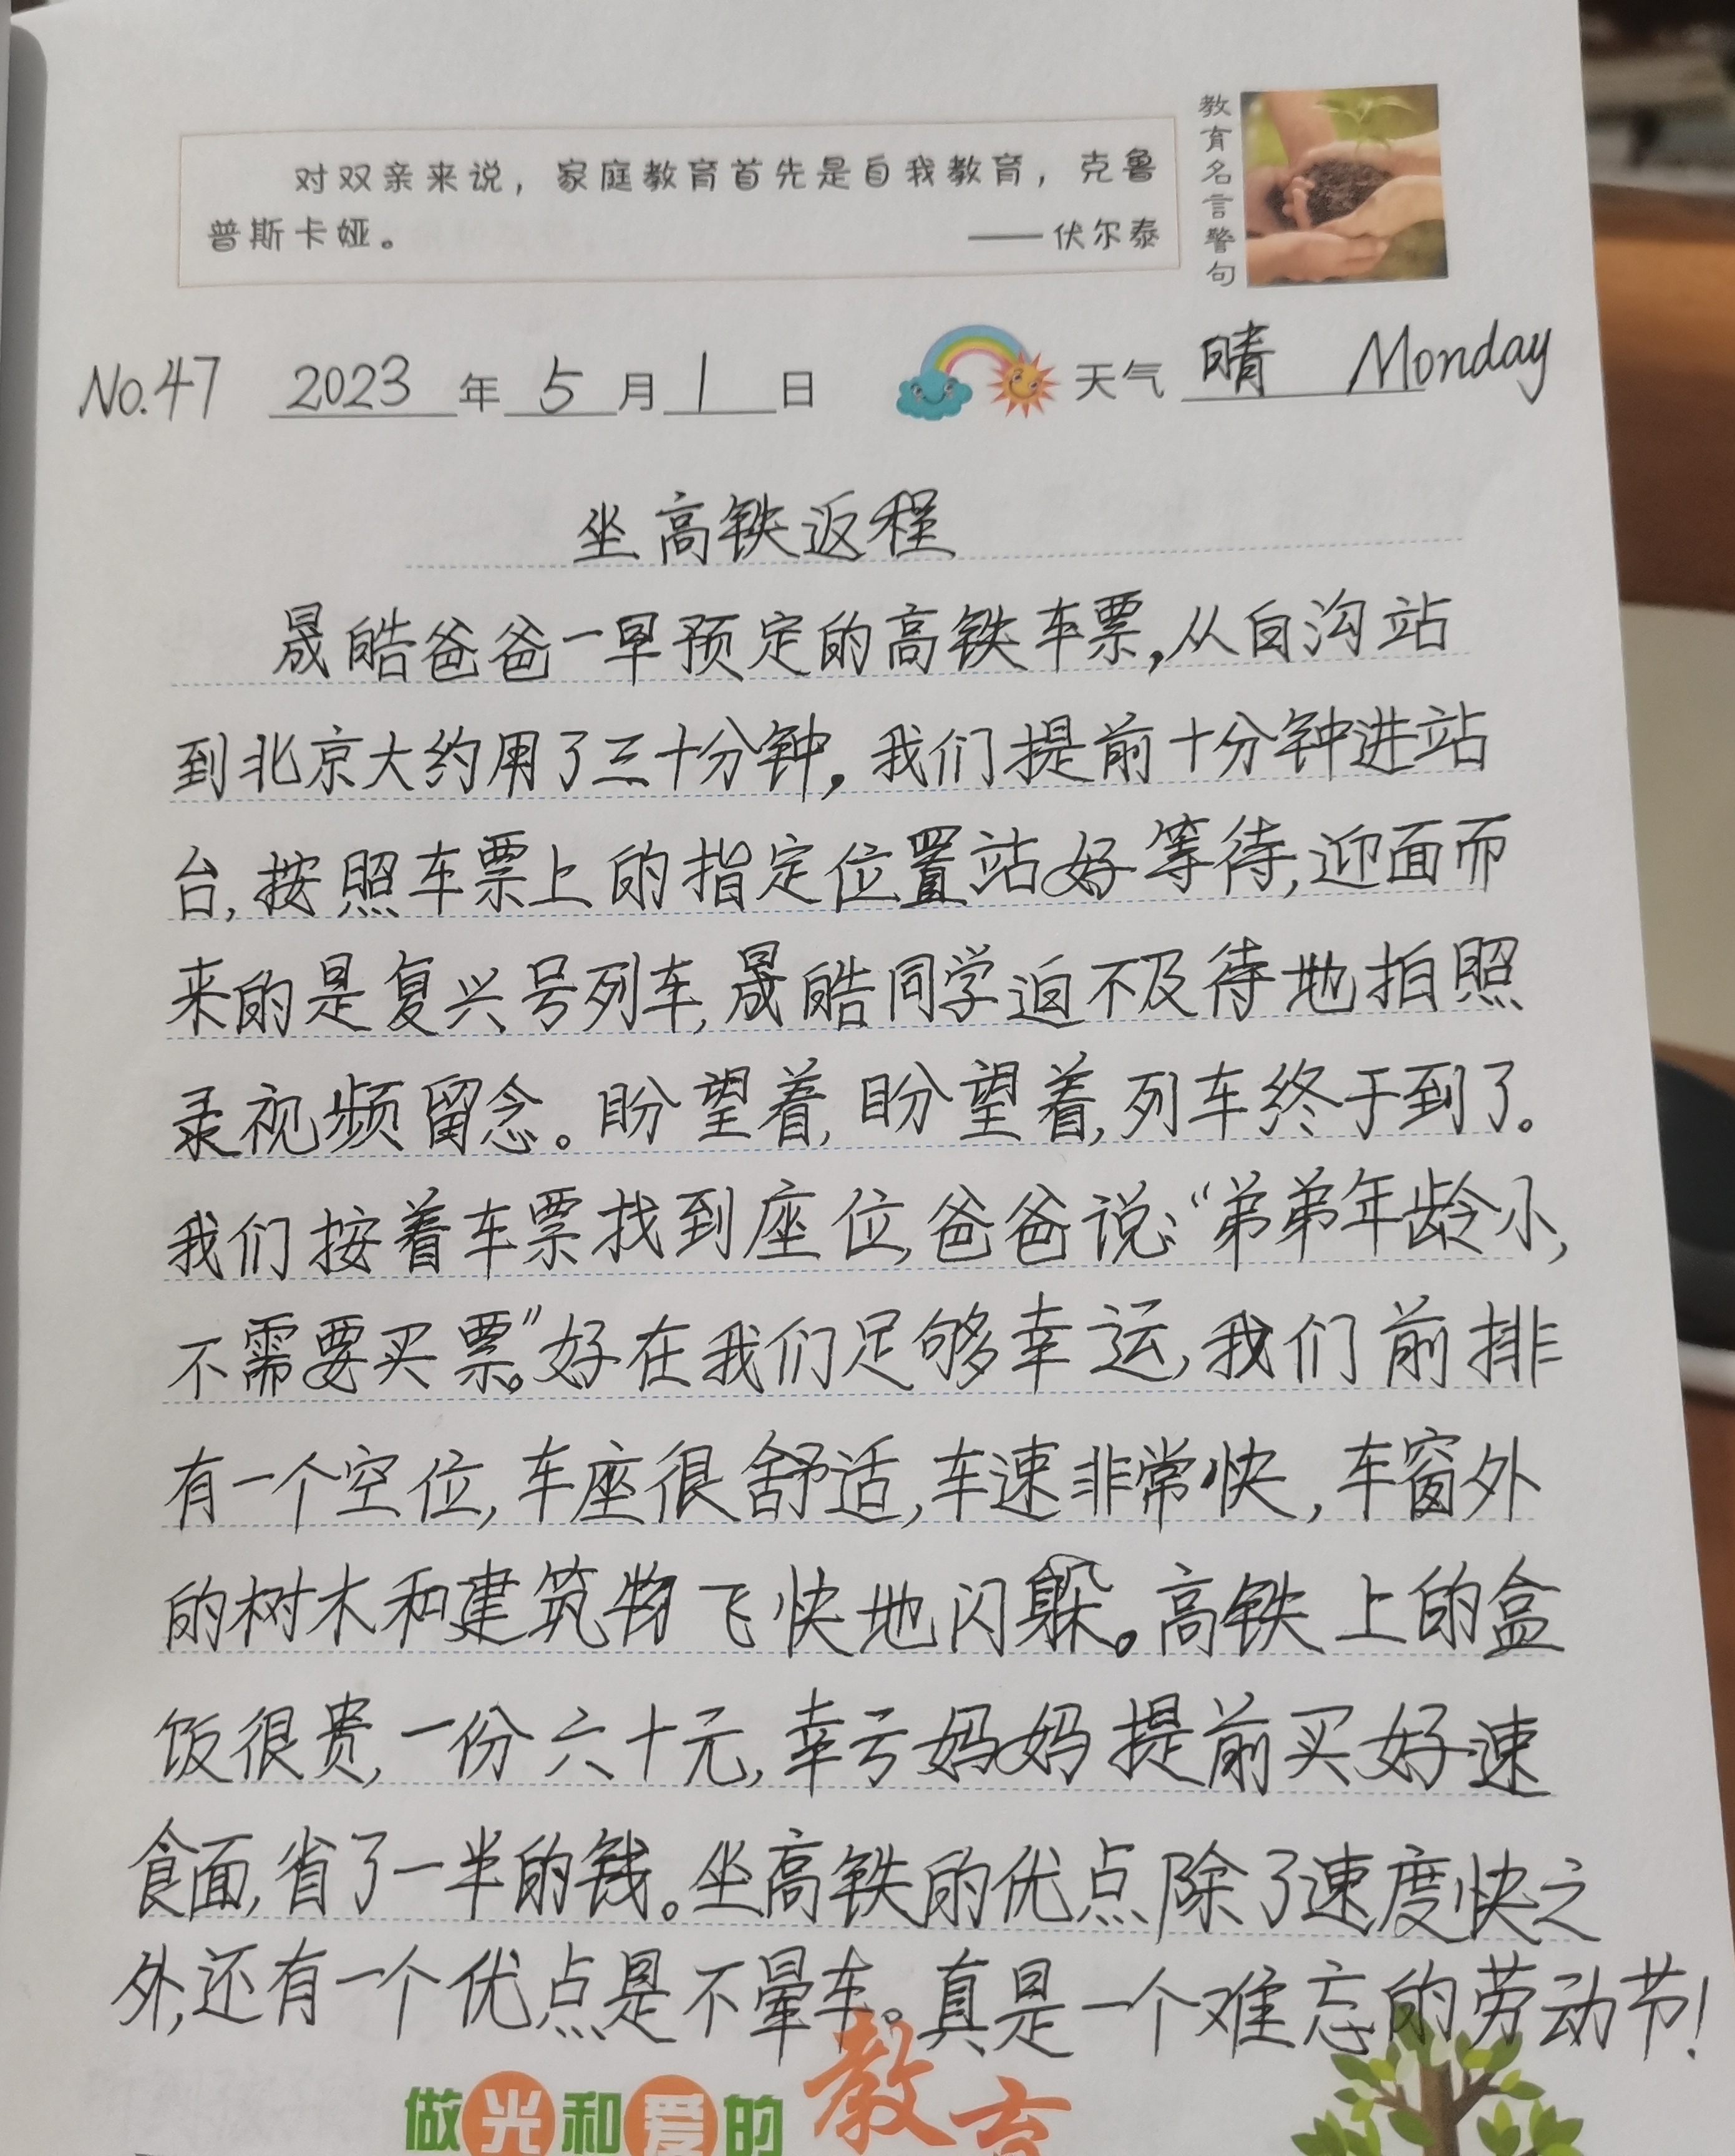 对双亲来说，家庭教育首先是自我教育，克鲁
普斯卡娅。
——伏尔泰
教育名言警句
No.47 2023年5月1日 天气 晴 Monday
坐高铁返程
晟皓爸爸一早预定的高铁车票,从白沟站
到北京大约用了三十分钟，我们提前十分钟进站
台,按照车票上的指定位置站好等待,迎面而
来的是复兴号列车,晟皓同学迫不及待地拍照
录视频留念。盼望着,盼望着,列车终于到了。
我们按着车票找到座位,爸爸说:“弟弟年龄小,
不需要买票。”好在我们足够幸运,我们前排
有一个空位,车座很舒适,车速非常快,车窗外
的树木和建筑物飞快地闪躲。高铁上的盒
饭很贵,一份六十元,幸亏妈妈提前买好速
食面,省了一半的钱。坐高铁的优点除了速度快之
外,还有一个优点是不晕车。真是一个难忘的劳动节!
做光和爱的教育